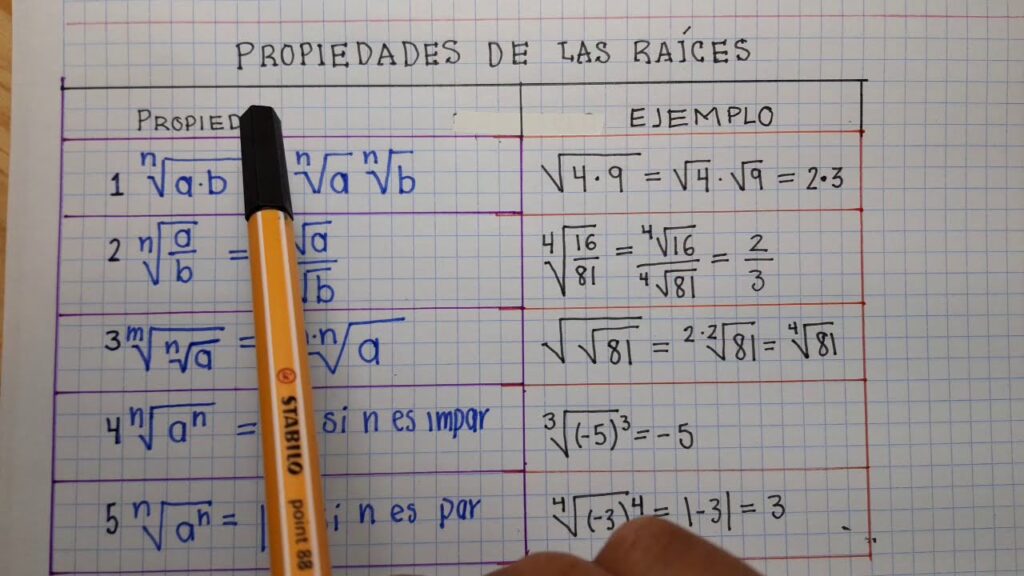 PROPIEDADES DE LAS RAÍCES
PROPIED EJEMPLO
1 ⁿ√(a·b) ⁿ√a ⁿ√b √(4·9) = √4 · √9 = 2·3
2 ⁿ√(a/b) = √a/√b ⁴√(16/81) = ⁴√16/⁴√81 = 2/3
3 ᵐ√(ⁿ√a) = ·ⁿ√a √(√81) = ²·²√81 = ⁴√81
4 ⁿ√(aⁿ) = si n es impar ³√((-5)³) = -5
5 ⁿ√(aⁿ) = | si n es par ⁴√((-3)⁴) = |-3| = 3
STABILO
point 88